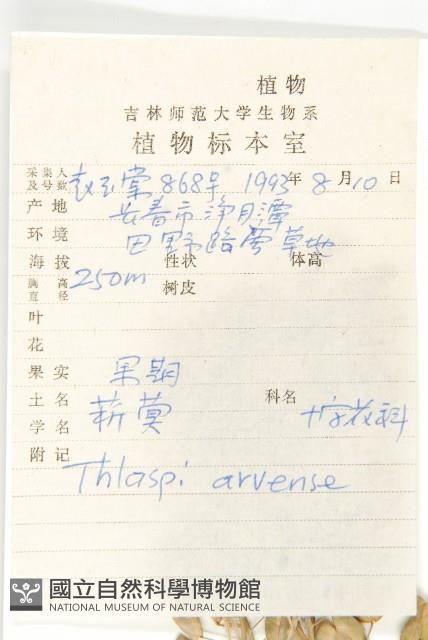 植物
吉林师范大学生物系
植物标本室
采集人及号数 赵玉棠 868号 1993年8月10日
产地 长春市净月潭
环境 田野 路旁草地
海拔 250m 性状 体高
胸高直径 树皮
叶
花
果实 果期
土名 菥蓂 科名 十字花科
学名
附记 Thlaspi arvense
國立自然科學博物館
NATIONAL MUSEUM OF NATURAL SCIENCE